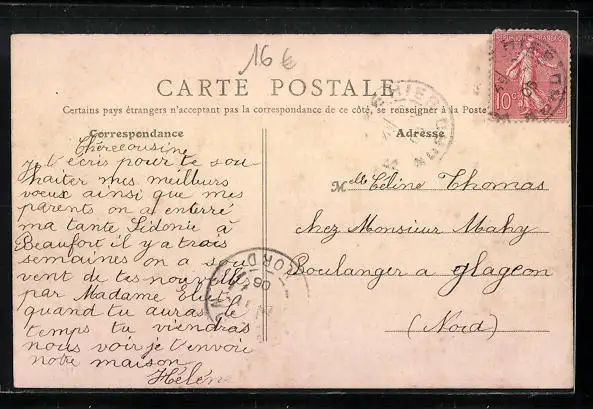 16 €
CARTE POSTALE
Certains pays étrangers n'acceptant pas la correspondance de ce côté, se renseigner à la Poste
Correspondance
Adresse
10c
Chère cousine
Je t'écris pour te sou-
haiter mes meilleurs
voeux ainsi que mes
parents on a enterré
ma tante Sidonie à
Beaufort il y a trois
semaines on a sou
vent de tes nouvelle
par Madame
quand tu auras le
temps tu viendras
nous voir je t'envoi
notre maison
Hélène
Melle Céline Thomas
chez Monsieur Mahy
Boulanger a glageon
(Nord)
NORD
06